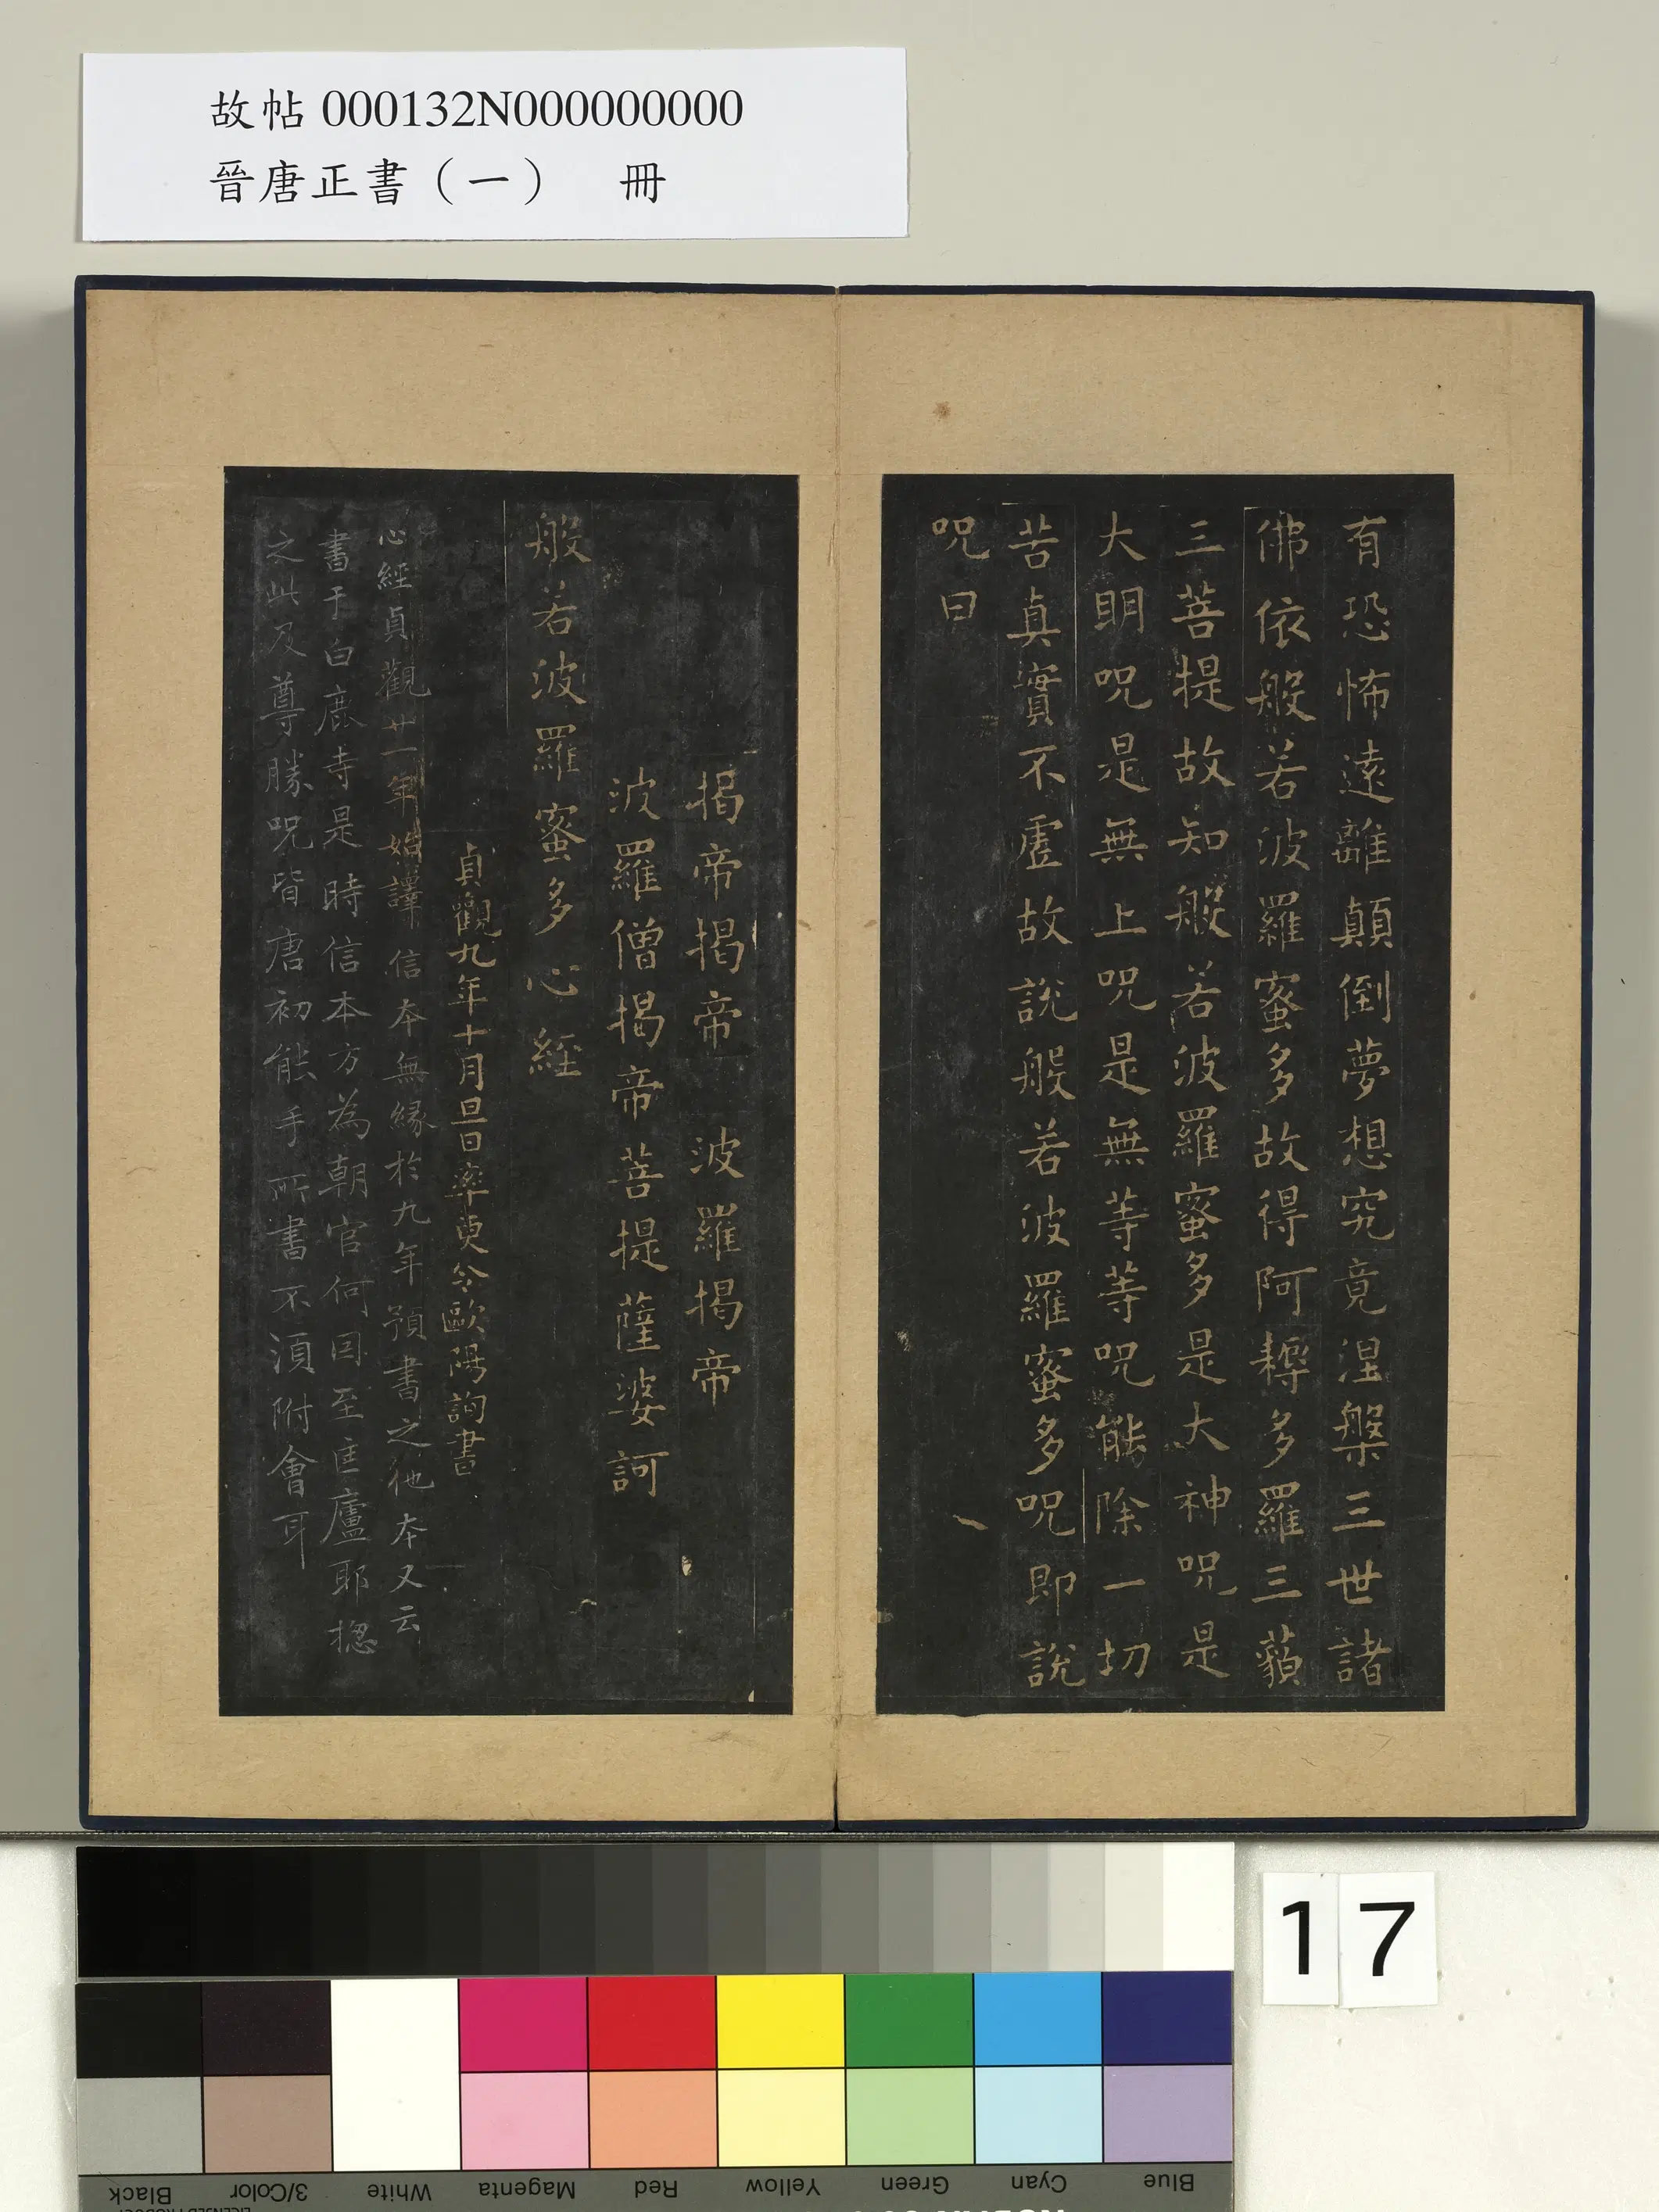 故帖 000132N000000000
晉唐正書（一） 冊
有恐怖遠離顛倒夢想究竟涅槃三世諸
佛依般若波羅蜜多故得阿耨多羅三藐
三菩提故知般若波羅蜜多是大神呪是
大明呪是無上呪是無等等呪能除一切
苦真實不虛故說般若波羅蜜多呪即說
呪曰
揭帝揭帝 波羅揭帝
波羅僧揭帝菩提薩婆訶
般若波羅蜜多心經
貞觀九年十月旦日率更令歐陽詢書
心經貞觀廿一年始譯信本無緣於九年預書之他本又云
書于白鹿寺是時信本方為朝官何因至匡廬耶揔
之此及尊勝呪皆唐初能手所書不須附會耳
17
Black 3/Color White Magenta Red Yellow Green Cyan Blue